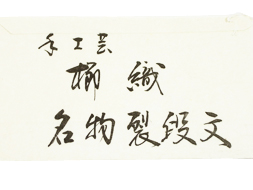 手工芸
櫛織
名物裂段文